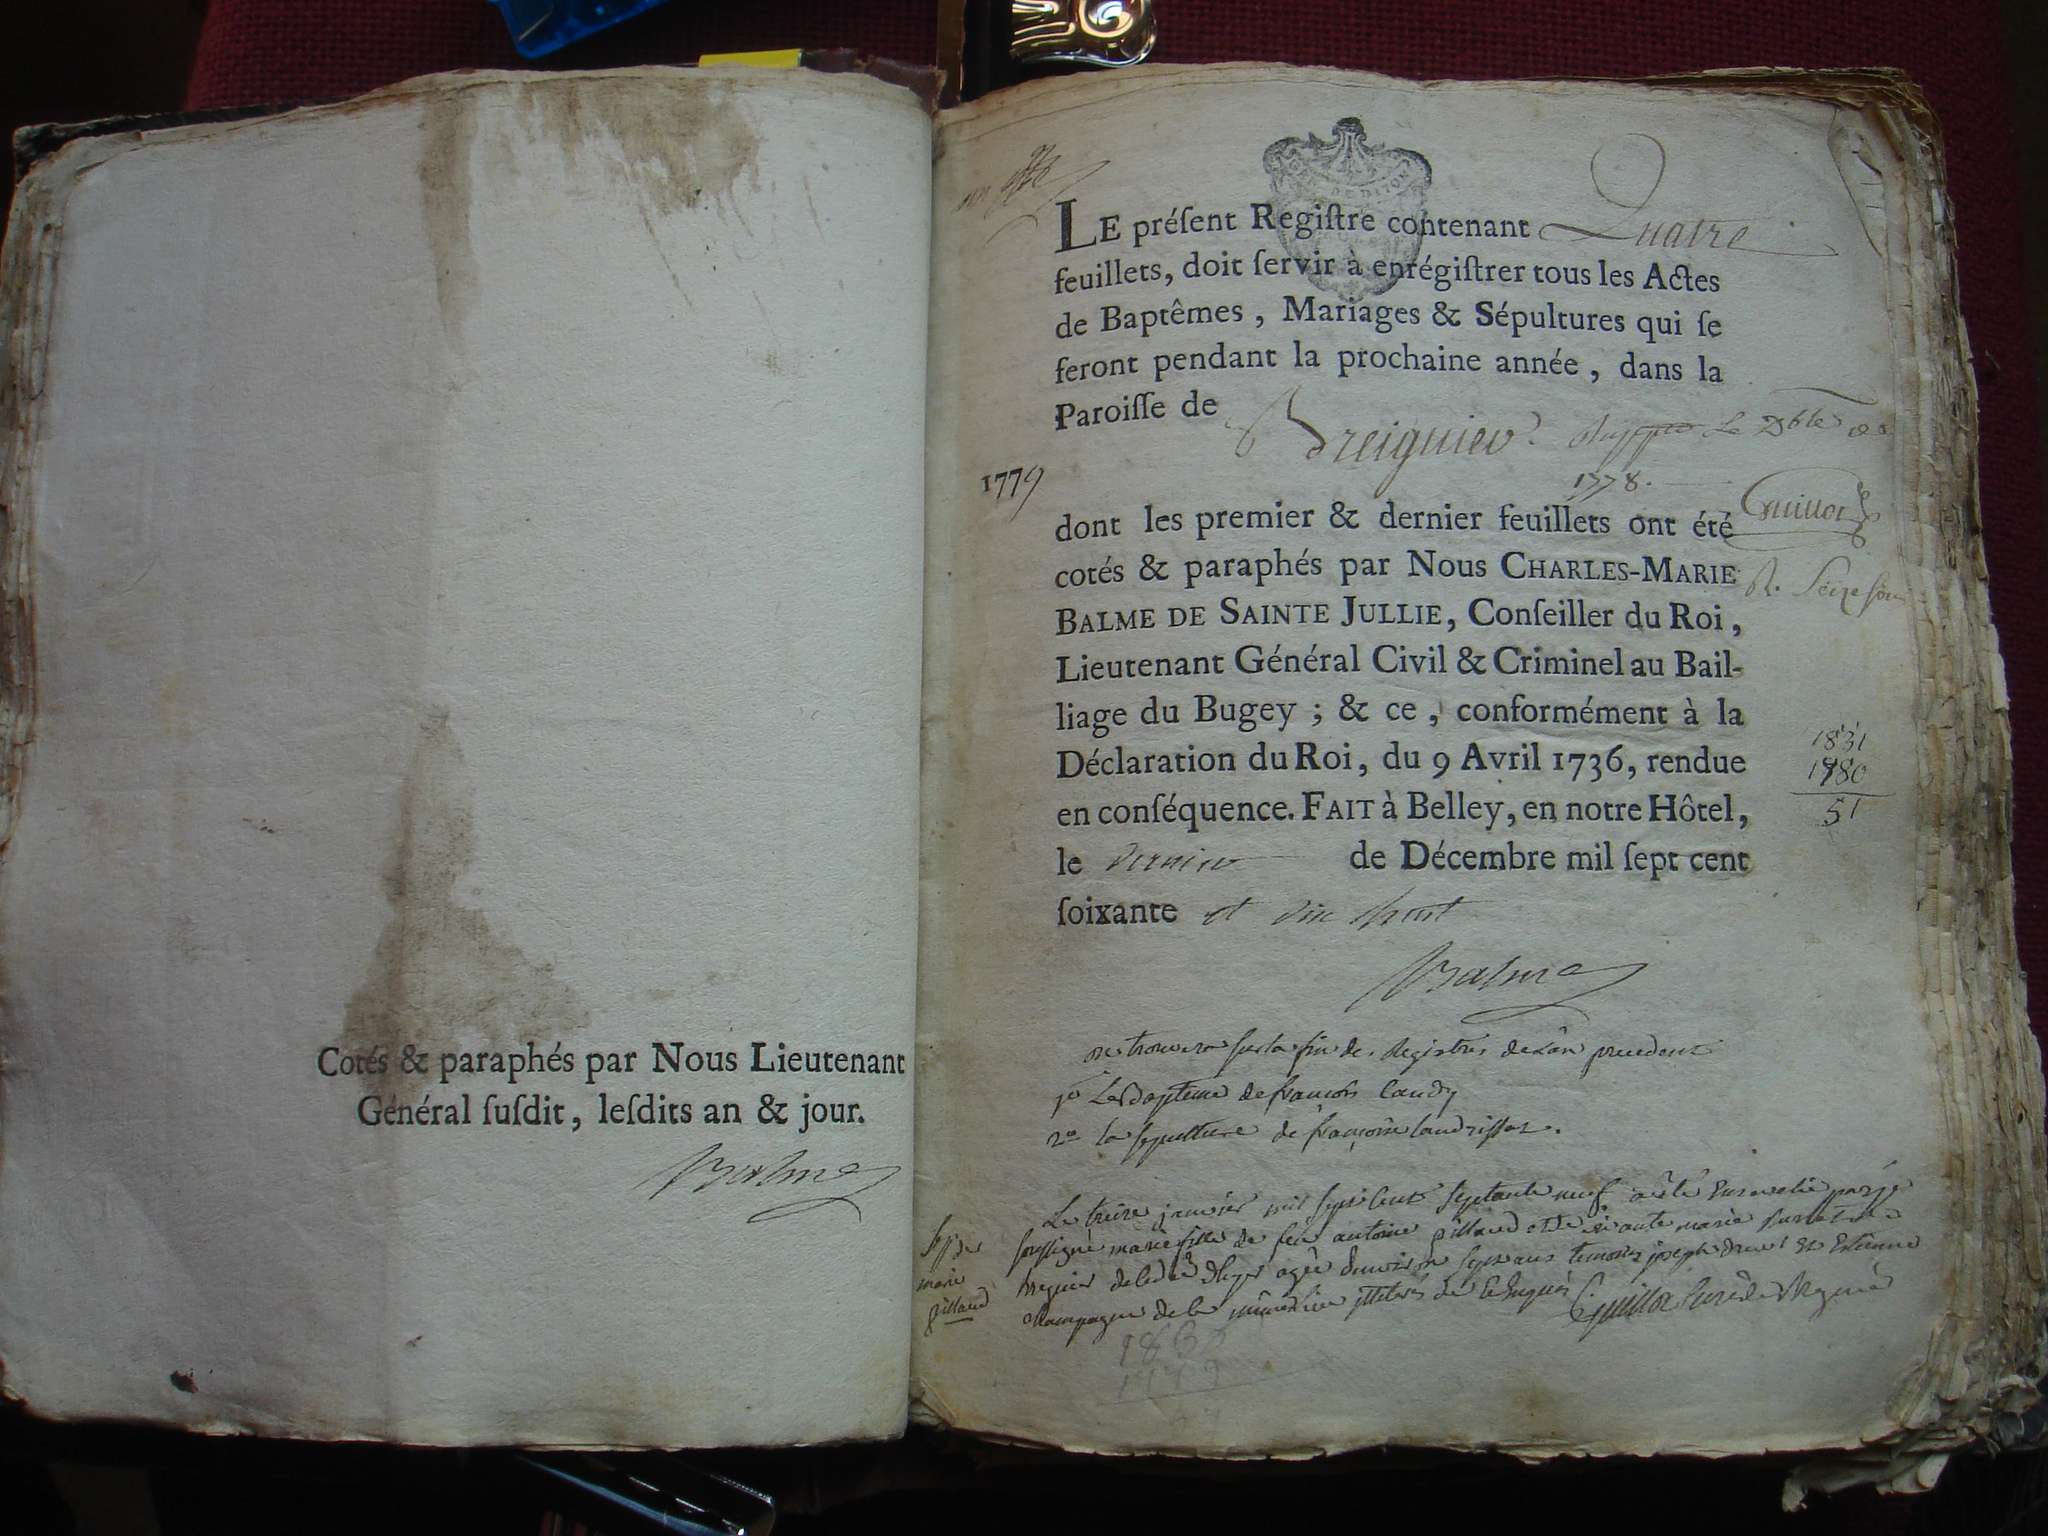 Cotés & paraphés par Nous Lieutenant
Général ſuſdit, leſdits an & jour.
Balme
LE préſent Regiſtre contenant Quatre
feuillets, doit ſervir à enrégiſtrer tous les Actes
de Baptêmes, Mariages & Sépultures qui ſe
feront pendant la prochaine année, dans la
Paroiſſe de Breignier Le Dble de
1778.
1779
dont les premier & dernier feuillets ont été
Guillot
cotés & paraphés par Nous CHARLES-MARIE
BALME DE SAINTE JULLIE, Conſeiller du Roi,
Lieutenant Général Civil & Criminel au Bail-
liage du Bugey ; & ce, conformément à la
Déclaration du Roi, du 9 Avril 1736, rendue
en conſéquence. FAIT à Belley, en notre Hôtel,
le dernier de Décembre mil ſept cent
ſoixante et dix huit
1831
1780
51
Balme
on trouvera sur la fin des Registres de l'an precedent
1o Le Bapteme de françois Caudy
2o la sepulture de françoise
Le treize janvier mil sept cent septante neuf a été par je
soussigné marie fille de feu antoine gillaud et de marie
agée d'environ sept ans temoins joseph et Estienne
de la Guillot Curé de
marie
gillaud